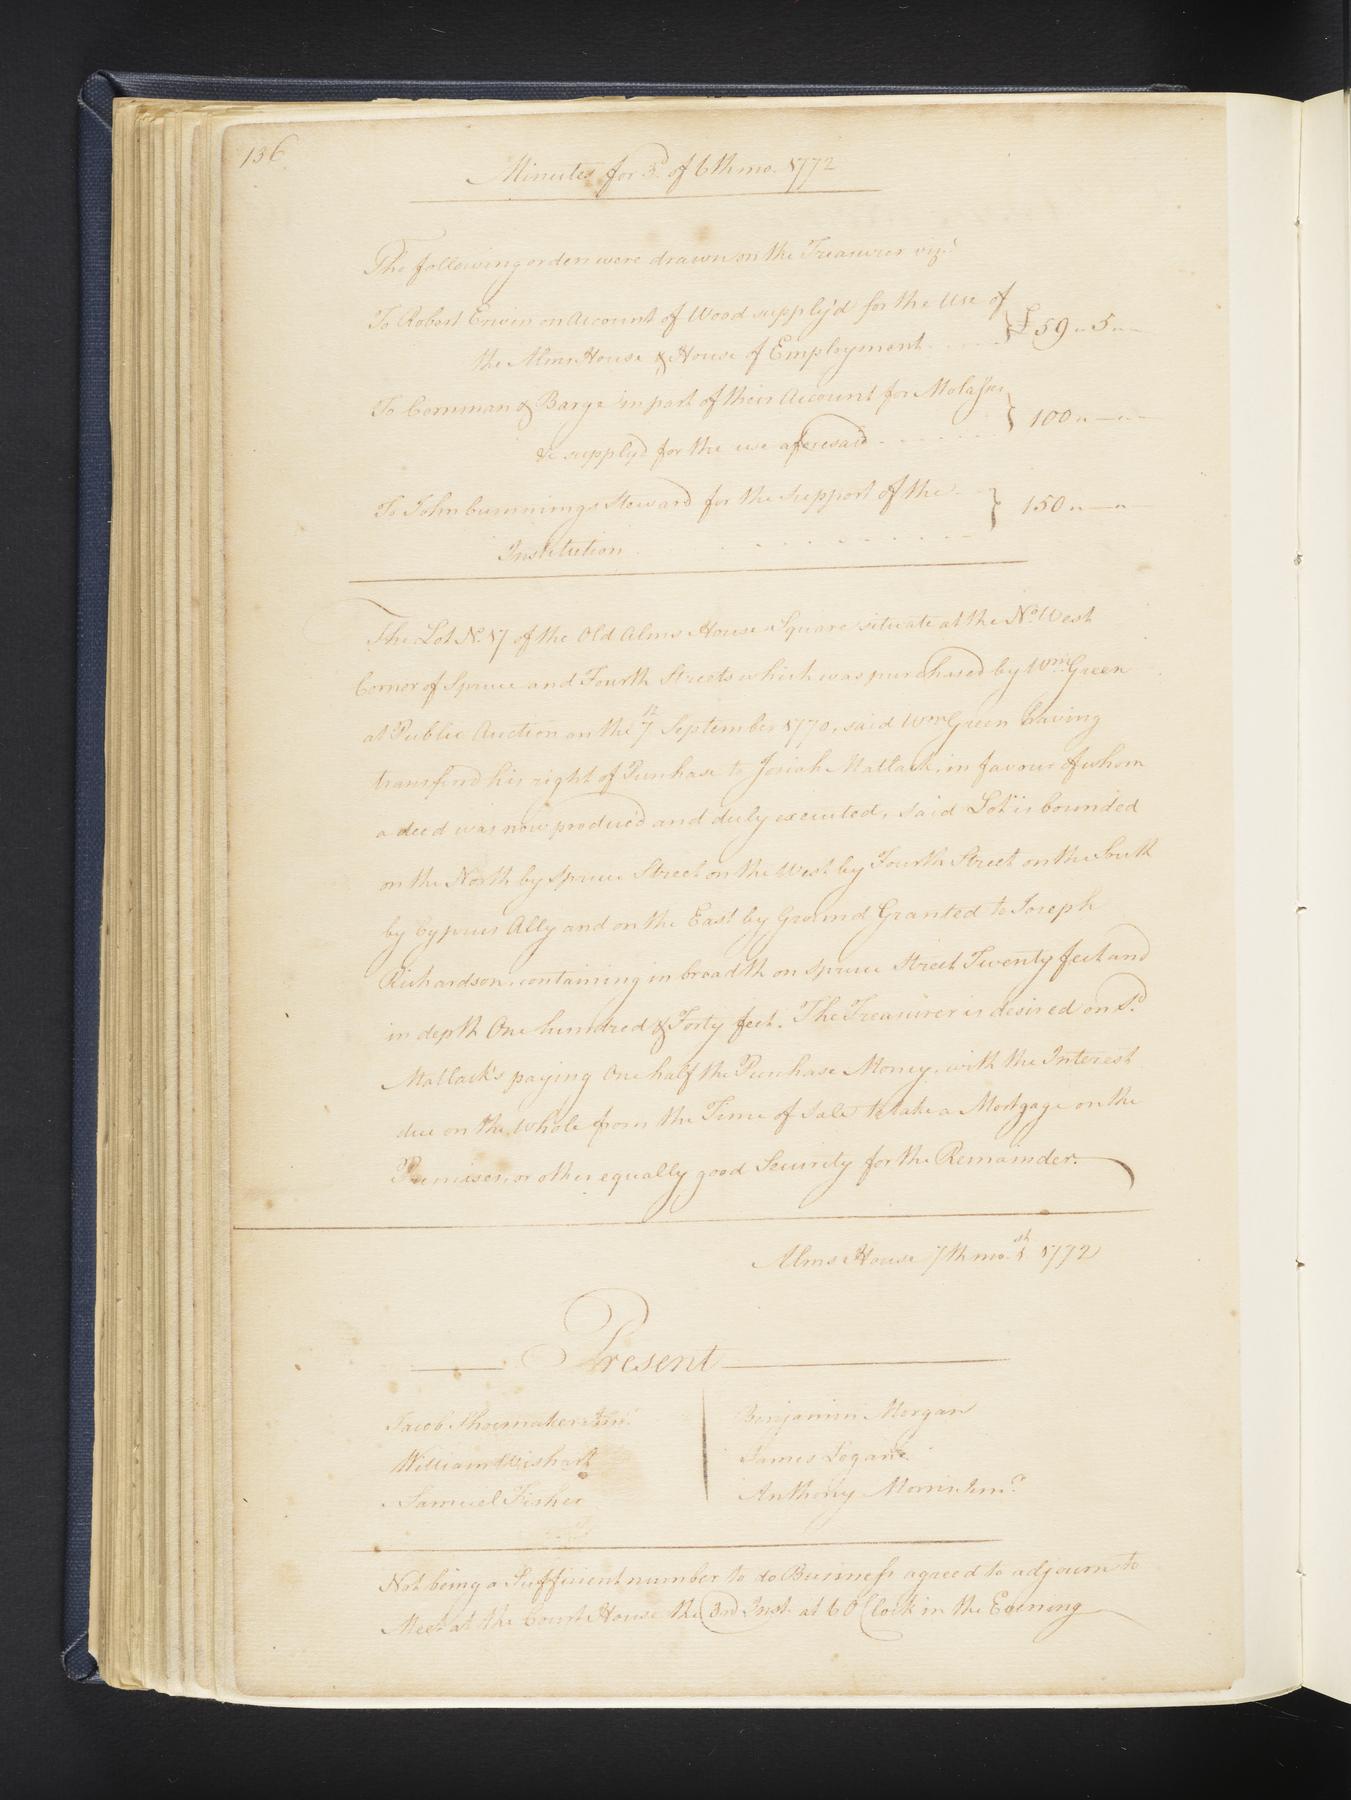 136
Minutes for 3d of 6th mo. 1772
The following orders were drawn on the Treasurer vizt
To Robert Erwin on Account of Wood supply'd for the Use of
the Alms House & House of Employment £59 " 5 " —
To Cornman & Barge in part of their Account for Molasses
&c supply'd for the use aforesaid 100 " — " —
To John Cummings Steward for the Support of the
Institution 150 " — " —
The Lot No. 17 of the Old Alms House Square situate at the No. West
Corner of Spruce and Fourth Streets which was purchased by Wm Green
at Public Auction on the 7th September 1770, said Wm Green having
transferd his right of Purchase to Josiah Matlack, in favour of whom
a deed was now produced and duly executed, said Lot is bounded
on the North by Spruce Street on the West by Fourth Street on the South
by Cyprus Ally and on the East by Ground Granted to Joseph
Richardson, containing in breadth on Spruce Street Twenty feet and
in depth One hundred & Forty feet. The Treasurer is desired on sd.
Matlack's paying One half the Purchase Money, with the Interest
due on the Whole from the Time of Sale to take a Mortgage on the
Premises, or other equally good Security for the Remainder.
Alms House 7th mo. 1st 1772
Present
Jacob Shoemaker Junr
William Wishart
Samuel Fisher
Benjamin Morgan
James Logan
Anthony Morris Junr
Not being a Sufficient number to do Business agreed to adjourn to
Meet at the Court House the 3rd Inst. at 6 O Clock in the Evening